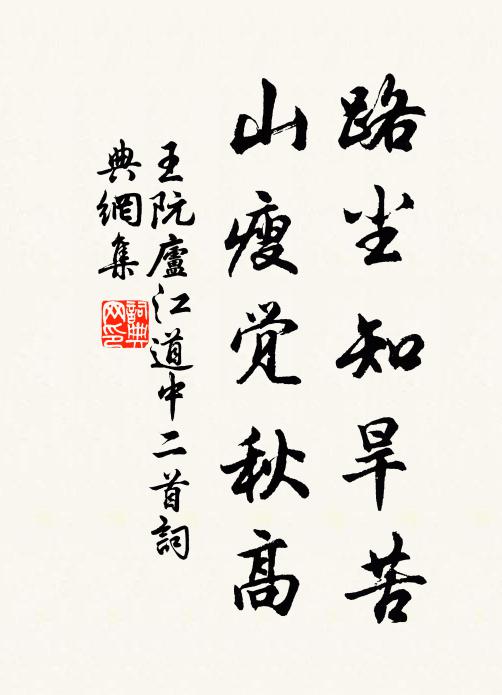 路尘知旱苦
山瘦觉秋高
王阮廬江道中二首詞
典網集
詞典
网印